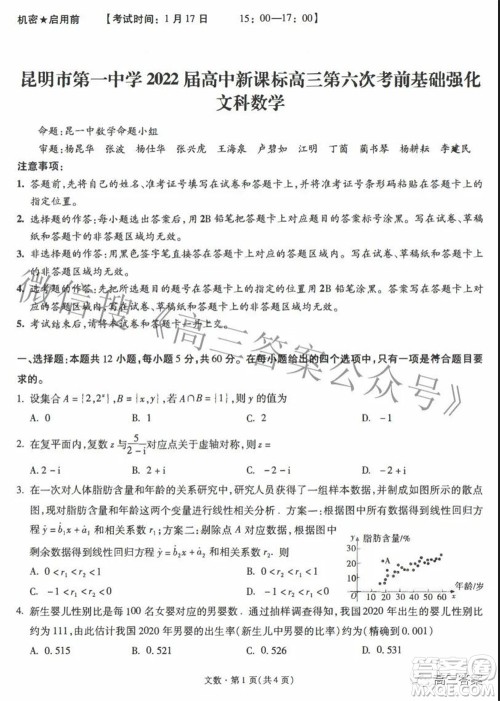 机密★启用前 【考试时间:1月17日 15:00—17:00】
昆明市第一中学2022届高中新课标高三第六次考前基础强化
文科数学
命题:昆一中数学命题小组
审题:杨昆华 张波 杨仕华 张兴虎 王海泉 卢碧如 江明 丁茵 蔺书琴 杨耕耘 李建民
注意事项:
1. 答题前,先将自己的姓名、准考证号填写在试卷和答题卡上,并将准考证号条形码粘贴在答题卡上的
指定位置。
2. 选择题的作答:每小题选出答案后,用2B铅笔把答题卡上对应题目的答案标号涂黑。写在试卷、草稿
纸和答题卡的非答题区域均无效。
3. 非选择题的作答:用黑色签字笔直接答在答题卡上对应的答题区域内。写在试卷、草稿纸和答题卡上
的非答题区域均无效。
4. 选考题的作答:先把所选题目的题号在答题卡上指定的位置用2B铅笔涂黑。答案写在答题卡上对
应的答题区域内,写在试卷、草稿纸和答题卡的非答题区域均无效。
5. 考试结束后,请将本试卷和答题卡一并上交。
微信搜《高三答案公众号》
一、选择题:本题共12小题,每小题5分,共60分。在每小题给出的四个选项中,只有一项是符合题目要
求的。
1. 设集合A={2,2ˣ},B={x,y},若A∩B={1},则y的值为
A. 0 B. 1 C. 2 D. -1
2. 在复平面内,复数z与5/(2-i)对应点关于虚轴对称,则z=
A. 2-i B. -2-i C. -2+i D. 2+i
3. 在一次对人体脂肪含量和年龄的关系研究中,研究人员获得了一组样本数据,并制成如图所示的散点
图,现对这两个变量进行线性相关分析. 方案一:由图中所有数据,得到线性回归
方程ŷ=b̂₁x+â₁和相关系数r₁;方案二:剔除点A对应数据,由
剩余数据得到线性回归直线方程ŷ=b̂₂x+â₂和相关系数r₂.则
A. 0<r₁<r₂<1
B. 0<r₂<r₁<1
C. -1<r₁<r₂<0
D. -1<r₂<r₁<0
y 脂肪含量/%
30
20
10
0
A
10 20 30 40 50 60
年龄/岁
x
4. 新生婴儿性别比是每100名女婴对应的男婴数. 通过抽样调查得知,我国2020年出生的新生婴儿性
别比为
由此估计我国2020年男婴的出生率(新生儿中男婴的比率)为(精确到0.001)
A. 0.515 B. 0.518 C. 0.527 D. 0.531
文数·第1页(共4页)
高三答案
答案圈
MXQE.COM